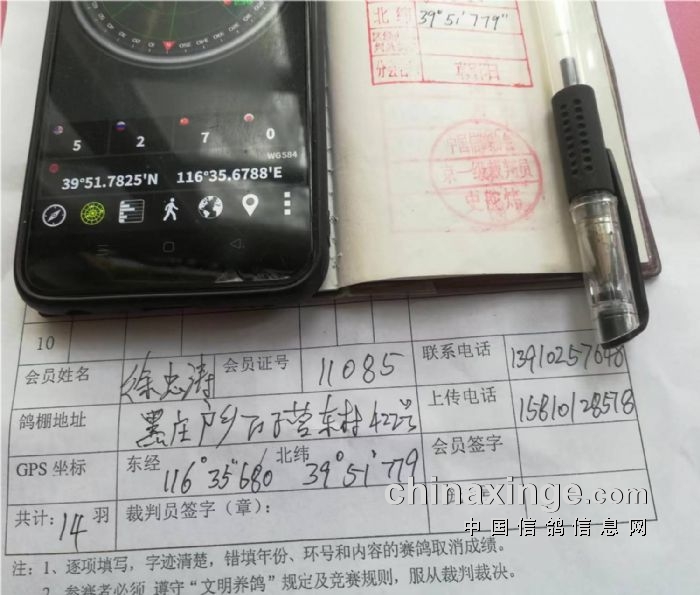 北纬 39°51'779"
分会包
5 2 7 0
WG584
39°51.7825'N 116°35.6788'E
第一级裁判员
10
会员姓名 徐忠涛 会员证号 11085 联系电话 13910257648
鸽棚地址 黑庄户乡万子营东村422号 上传电话 15810128578
GPS 坐标 东经 116°35"680 北纬 39°51'779 会员签字
共计:14 羽 裁判员签字(章):
chinaxinge.com
中国信鸽信息网
注: 1、逐项填写,字迹清楚,错填年份、环号和内容的赛鸽取消成绩。
2、参赛者必须 遵守“文明养鸽”规定及竞赛规则,服从裁判裁决。